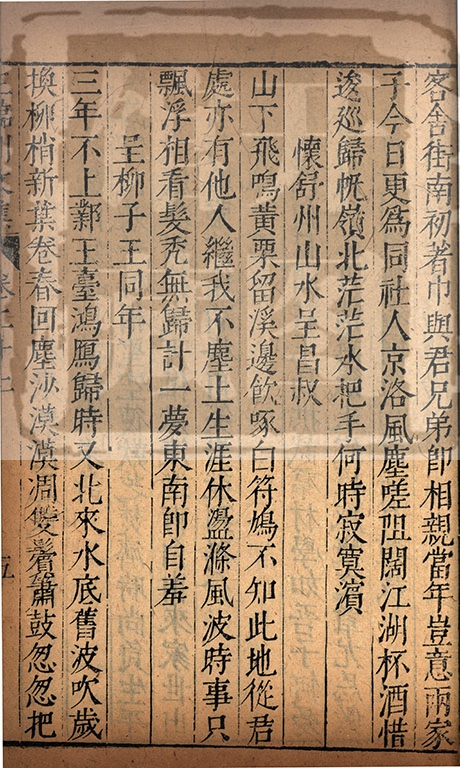 客舍街南初著巾與君兄弟即相親當年豈意兩家
子今日更為同社人京洛風塵嗟阻闊江湖杯酒惜
逡巡歸帆嶺北茫茫水把手何時寂寞濱
懷舒州山水呈昌叔
山下飛鳴黃栗留溪邊飲啄白符鳩不知此地從君
處亦有他人繼我不塵土生涯休盪滌風波時事只
飄浮相看髮禿無歸計一夢東南即自羞
呈柳子玉同年
三年不上鄴王臺鴻鴈歸時又北來水底舊波吹歲
換柳梢新葉卷春回塵沙漠漠凋雙鬢簫鼓忽忽把
卷二十二
五